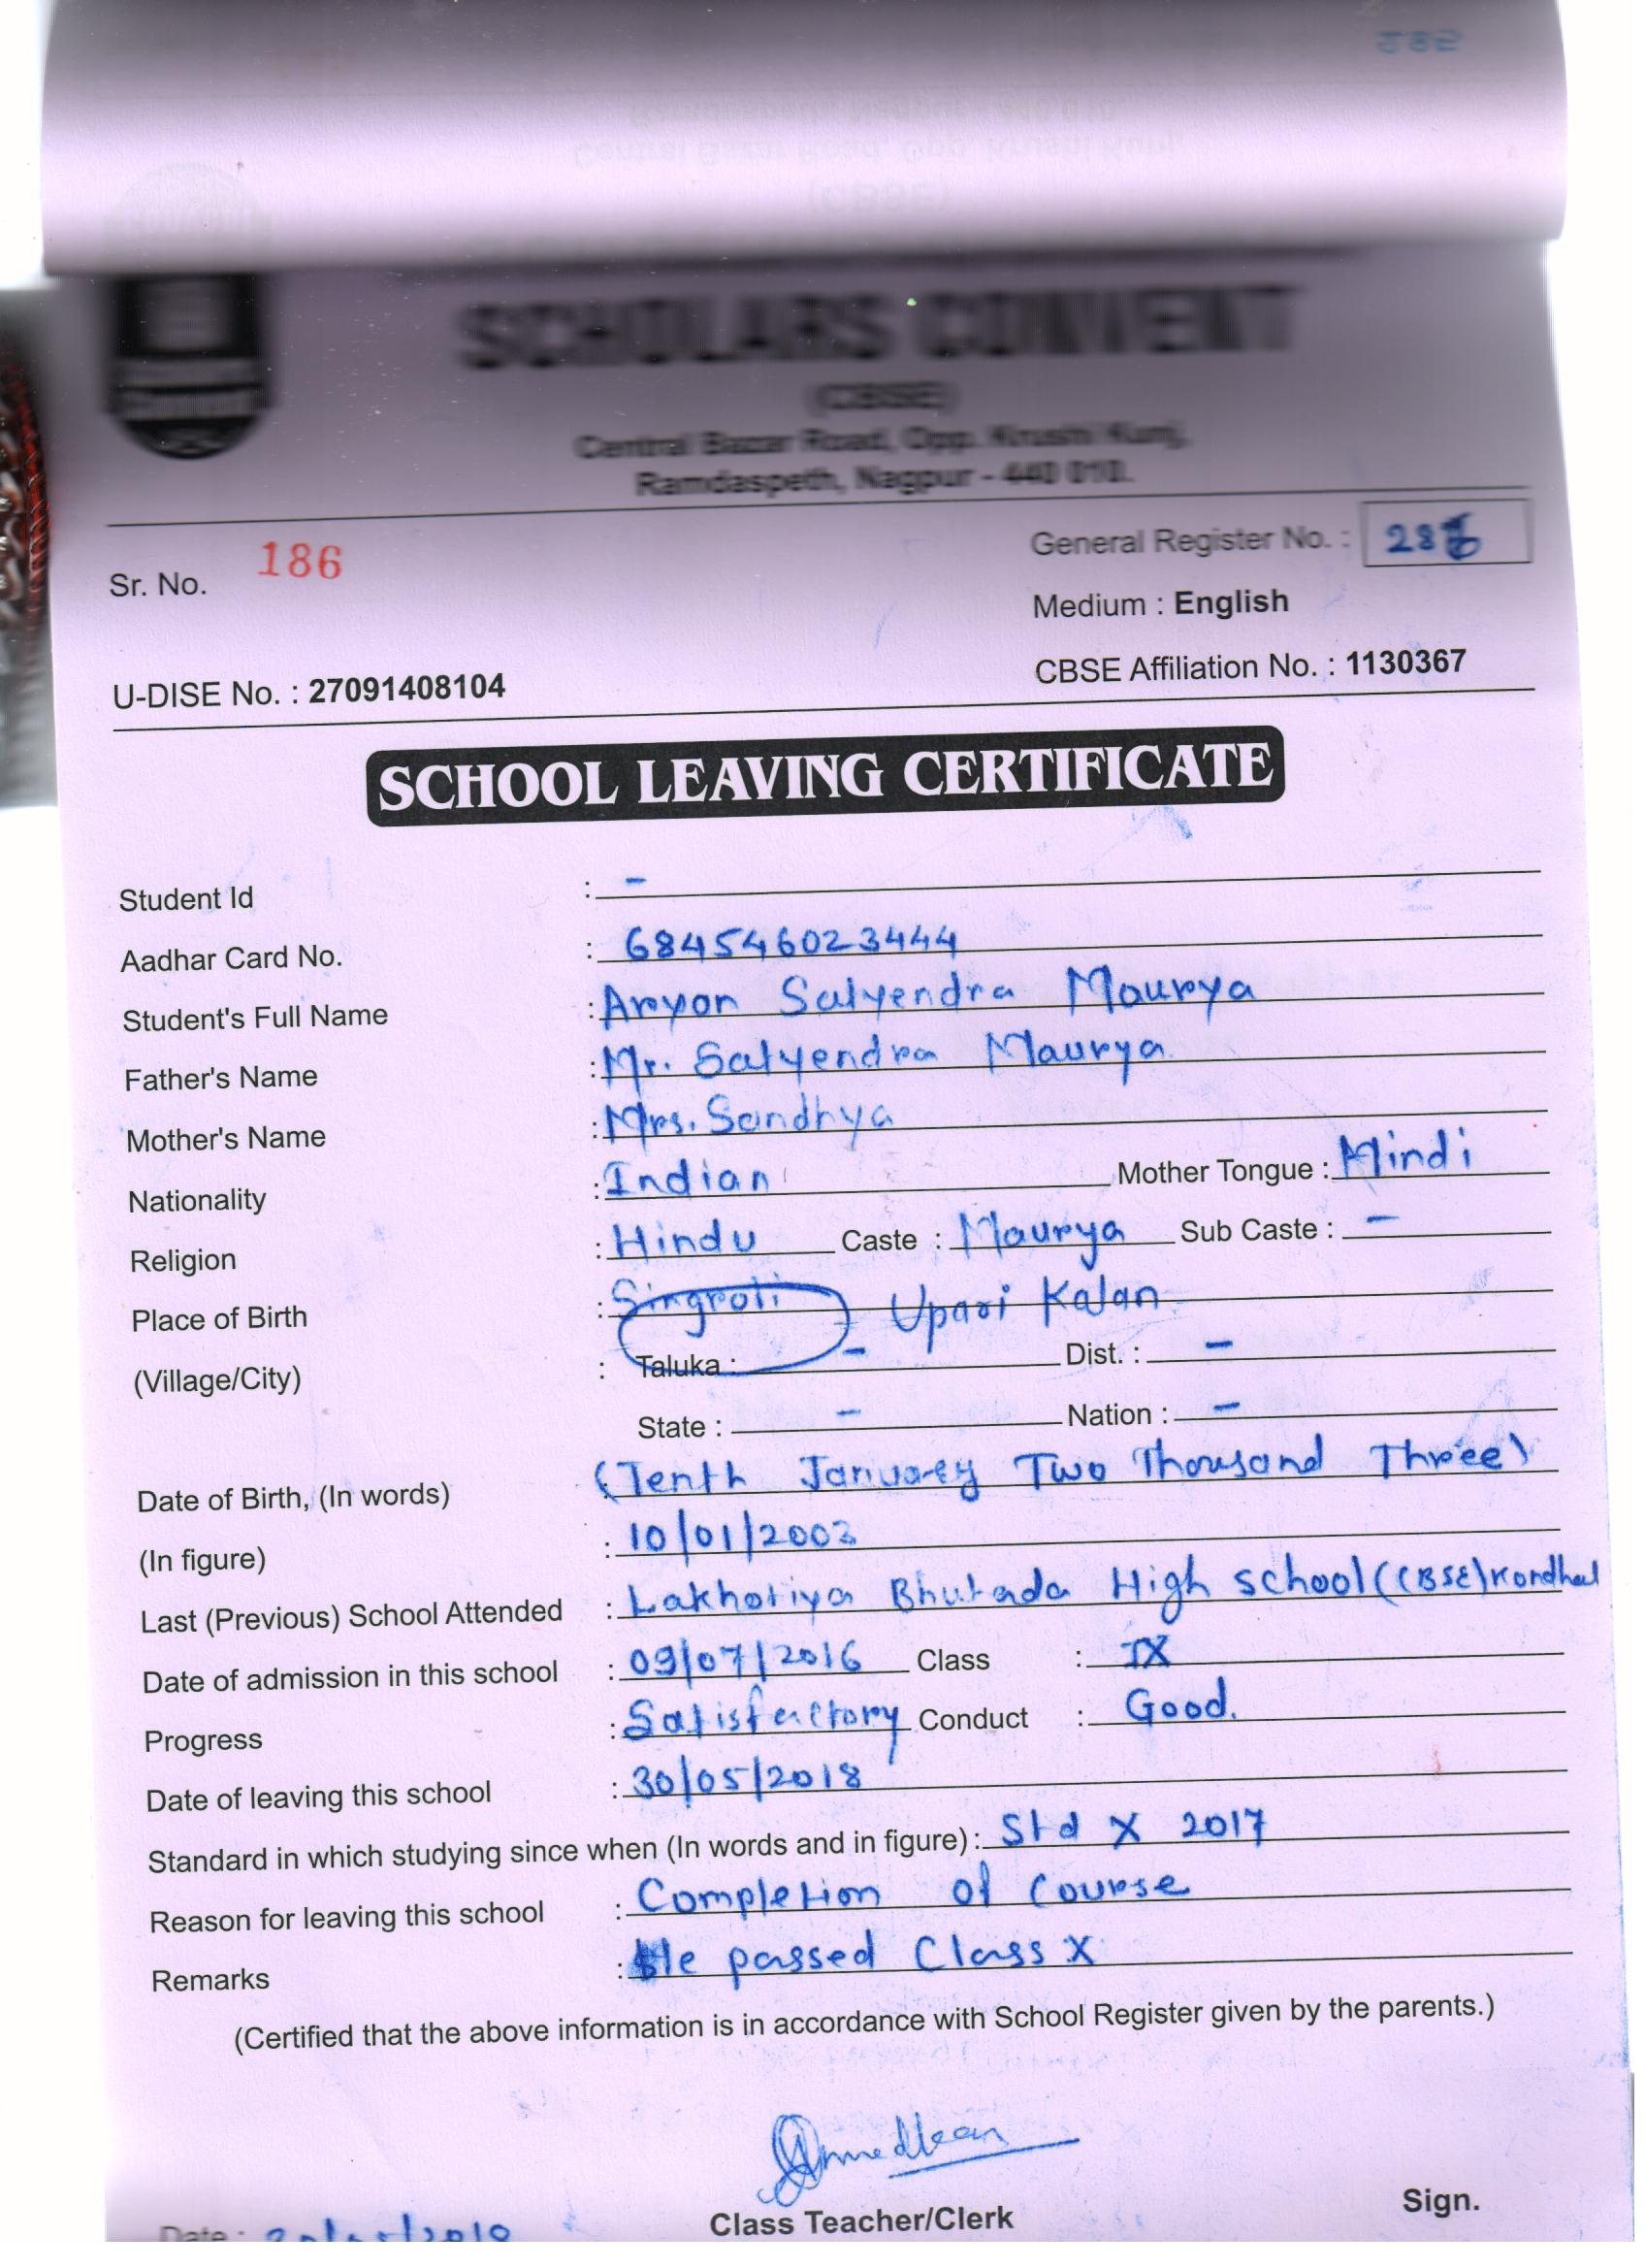 SCHOLARS CONVENT
(CBSE)
Central Bazar Road, Opp. Krushi Kunj,
Ramdaspeth, Nagpur - 440 010.
Sr. No. 186
General Register No. :
Medium : English
U-DISE No. : 27091408104
CBSE Affiliation No. : 1130367
SCHOOL LEAVING CERTIFICATE
Student Id : -
Aadhar Card No. : 684546023444
Student's Full Name : Aryan Satyendra Maurya
Father's Name : Mr. Satyendra Maurya
Mother's Name : Mrs. Sandhya
Nationality : Indian Mother Tongue : Hindi
Religion : Hindu Caste : Maurya Sub Caste : -
Place of Birth : Singroli Upari Kalan
(Village/City) : Taluka : - Dist. : -
State : - Nation : -
Date of Birth, (In words) (Tenth January Two Thousand Three)
(In figure) : 10/01/2003
Last (Previous) School Attended : Lakhotiya Bhutada High school (CBSE)
Date of admission in this school : 09/07/2016 Class : IX
Progress : Satisfactory Conduct : Good.
Date of leaving this school : 30/05/2018
Standard in which studying since when (In words and in figure) : Std X 2017
Reason for leaving this school : Completion of Course
Remarks : He passed Class X
(Certified that the above information is in accordance with School Register given by the parents.)
Date :
Class Teacher/Clerk
Sign.